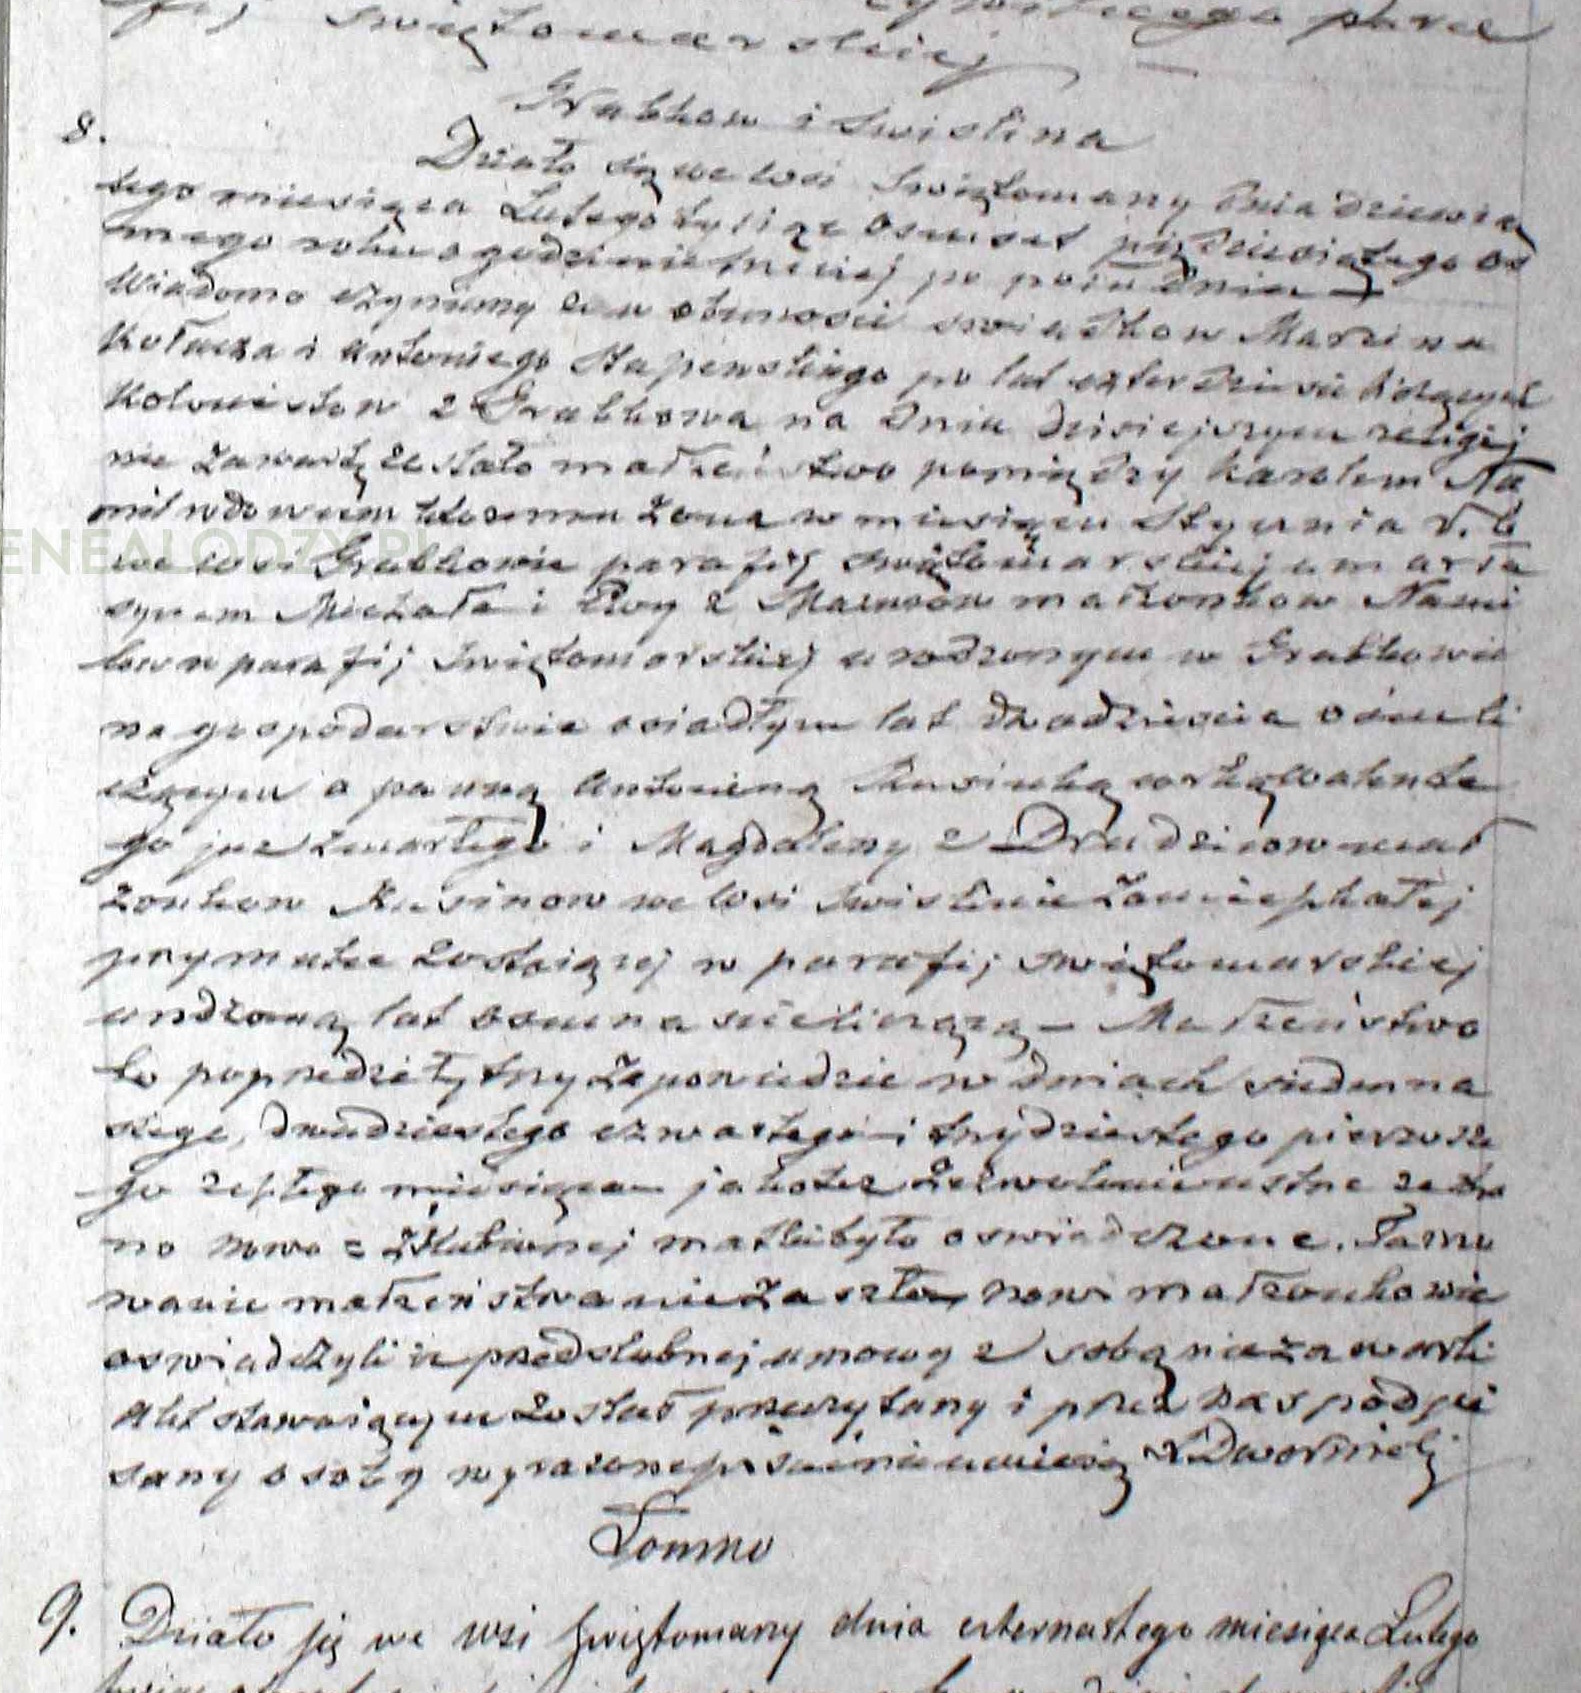 fij Świętomarskiej
Grabkow i Swislina
8.
Działo się we wsi Swiętomarzy dnia dziewią
tego miesiąca Lutego tysiąc osmset pięcdziesiątego os
mego roku o godzinie trzeciej po południu —
Wiadomo czynimy że w obecnosci swiadkow Marcina
Kołacza i Antoniego po lat czterdziesci liczących
Kolonistow z Grabkowa na dniu dzisiejszym religij
nie zawarte zostało małżeństwo pomiędzy Karolem Na
mil wdowcem ktoremu żona w miesiącu Styczniu r. b
we wsi Grabkowie parafij Swiętomarskiej umarła
synem Michała i Ewy z małzonkow Nami
low w parafij Swiętomarskiej urodzonym w Grabkowie
na gospodarstwie osiadłym lat dwadziescia osm li
czącym a panną Antoniną Kusinką corką Walente
go juz zmarłego i Magdaleny z małż
zonkow Kusinow we wsi Swislinie zamieszkałej
przy matce zostającej w parafij Swiętomarskiej
urodzoną lat osmnascie liczącą — Małżeństwo
to poprzedziły trzy zapowiedzie w dniach siedmna
stego, dwudziestego czwartego i trzydziestego pierwsze
go zeszłego miesiąca jakoteż zezwolenie ustne ze stro
ny nowo = zaślubionej matki było oswiadczone. Tamo
wanie małżeństwa nie zaszło, nowi małzonkowie
oswiadczyli iz przedslubnej umowy z sobą nie zawarli
Akt stawającym został przeczytany i przez nas podpi
sany osoby wyrażone pisać nie umieją
Łomno
9. Działo się we wsi Świętomarzy dnia czternastego miesiąca Lutego